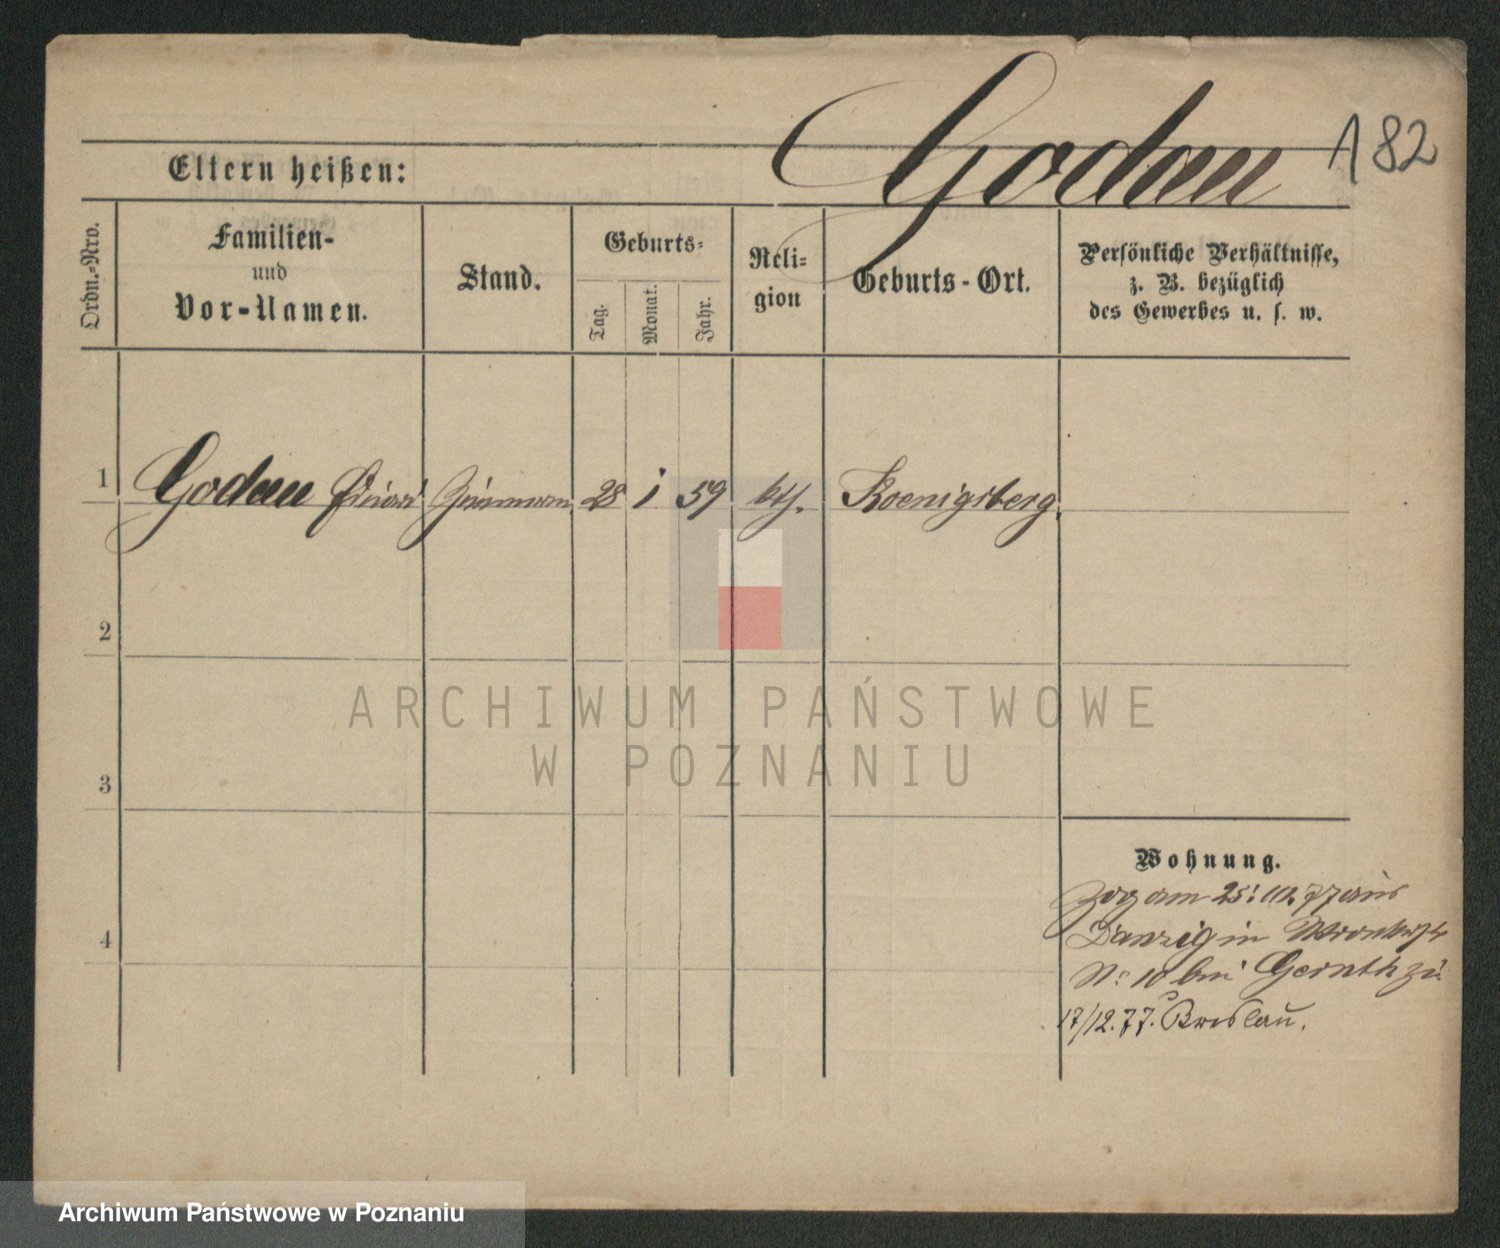 Godau
182
Eltern heißen:
Ordn.-Nro.
Familien-
und
Vor-Namen.
Stand.
Geburts-
Tag.
Monat.
Jahr.
Reli-
gion
Geburts-Ort.
Persönliche Verhältnisse,
z. B. bezüglich
des Gewerbes u. s. w.
1 Godau Eduard 28 1 59 Koenigsberg
2
3
4
Wohnung.
Zog am 25: 77 aus
Danzig in
No 10 bei zu.
17/12.77. Breslau.
ARCHIWUM PAŃSTWOWE
W POZNANIU
Archiwum Państwowe w Poznaniu